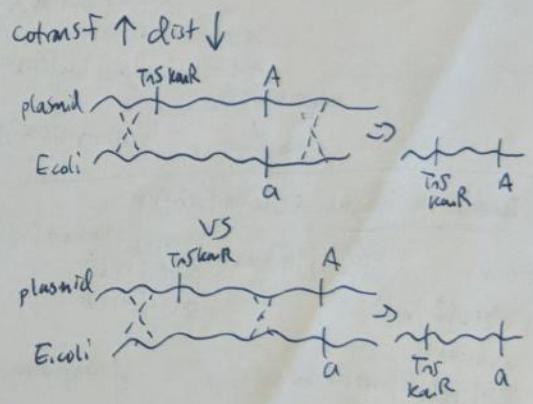 cotransf ↑ dist ↓
Tn5 kanR A
plasmid
E.coli
a
Tn5
kanR
A
VS
Tn5 kanR A
plasmid
E.coli
a
Tn5
kanR
a